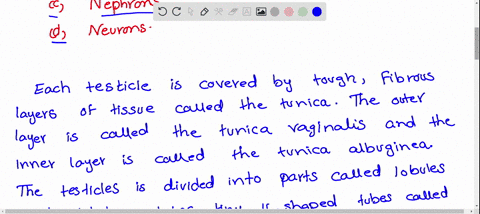 (c, Nephrons
(d, Neurons.
Each testicle is covered by tough, Fibrous
layers of tissue called the tunica. The outer
layer is called the tunica vaginalis and the
inner layer is called the tunica albuginea.
The testicles is divided into parts called lobules
shaped tubes called